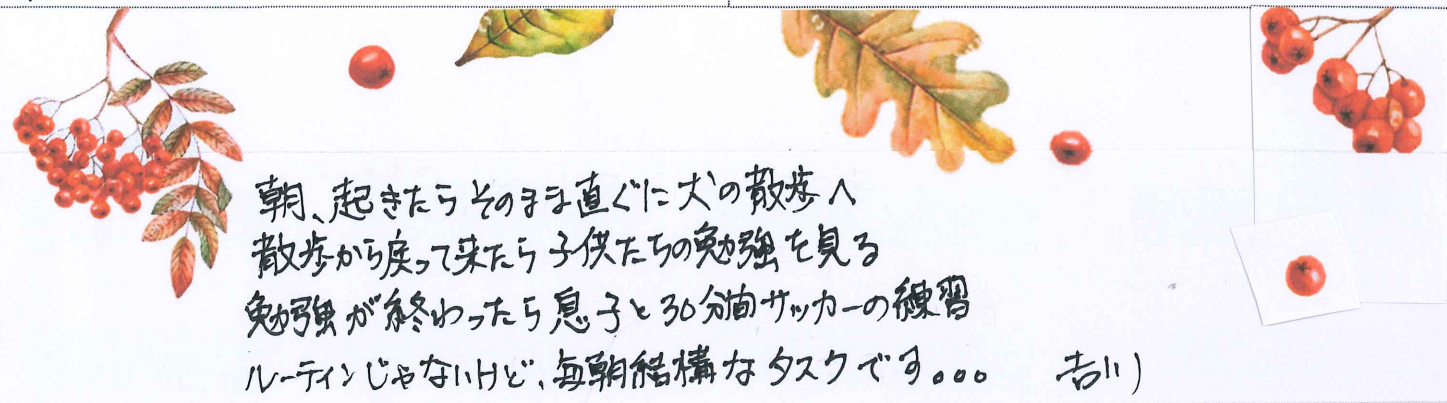 朝、起きたらそのまま直ぐに犬の散歩へ
散歩から戻って来たら子供たちの勉強を見る
勉強が終わったら息子と30分間サッカーの練習
ルーティンじゃないけど、毎朝結構なタスクです。。。 吉川